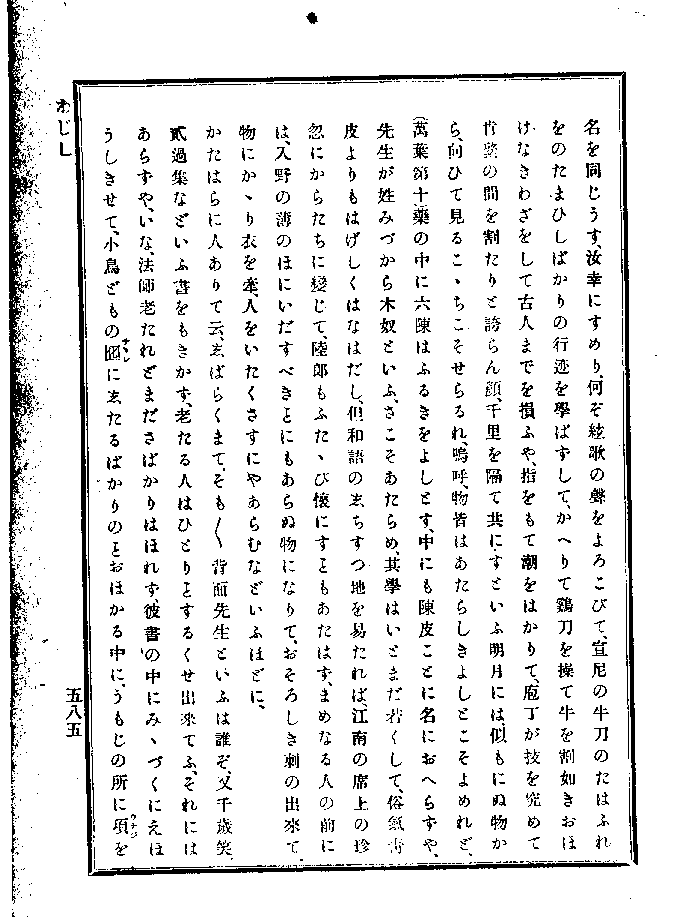 名を同じうす、汝幸にすめり、何ぞ絃歌の聲をよろこびて、宣尼の牛刀のたはふれ
をのたまひしばかりの行迹を學ばずして、かへりて鷄刀を操て牛を割如きおほ
けなきわざをして古人までを損ふや、指をもて潮をはかりて、庖丁が技を究めて
肯綮の間を割たりと誇らん顏、千里を隔て共にすといふ明月には、似もにぬ物か
ら、向ひて見るこゝちこそせらるれ、嗚呼、物皆はあたらしきよしとこそよめれど、
(萬葉第十)藥の中に六陳はふるきをよしとす、中にも陳皮ことに名におへらずや、
先生が姓みづから木奴といふ、さこそあたらめ、其學はいとまだ若くして、俗氣靑
皮よりもはげしくはなはだし、但和語の𛀁ちすつ地を易たれば、江南の席上の珍
忽にからたちに變じて、陸郎もふたゝび懷にすともあたはす、まめなる人の前に
は、入野の薄のほにいだすべきことにもあらぬ物になりて、おそろしき刺の出來て
物にかゝり衣を牽、人をいたくさすにやあらむなどいふほどに、
かたはらに人ありて云、志ばらくまて、そも〳〵背面先生といふは誰ぞ、又千歲笑
貳過集などいふ書をもきかず、老たる人はひとりごとするくせ出來てふ、それには
あらずや、いな、法師老たれどまださばかりはほれず、彼書の中にみゝづくにえほ
うしきせて、小鳥どもの囮に志たるばかりのことおほかる中に、うもじの所に項を
サシ
ウナジ
わじし
五八五